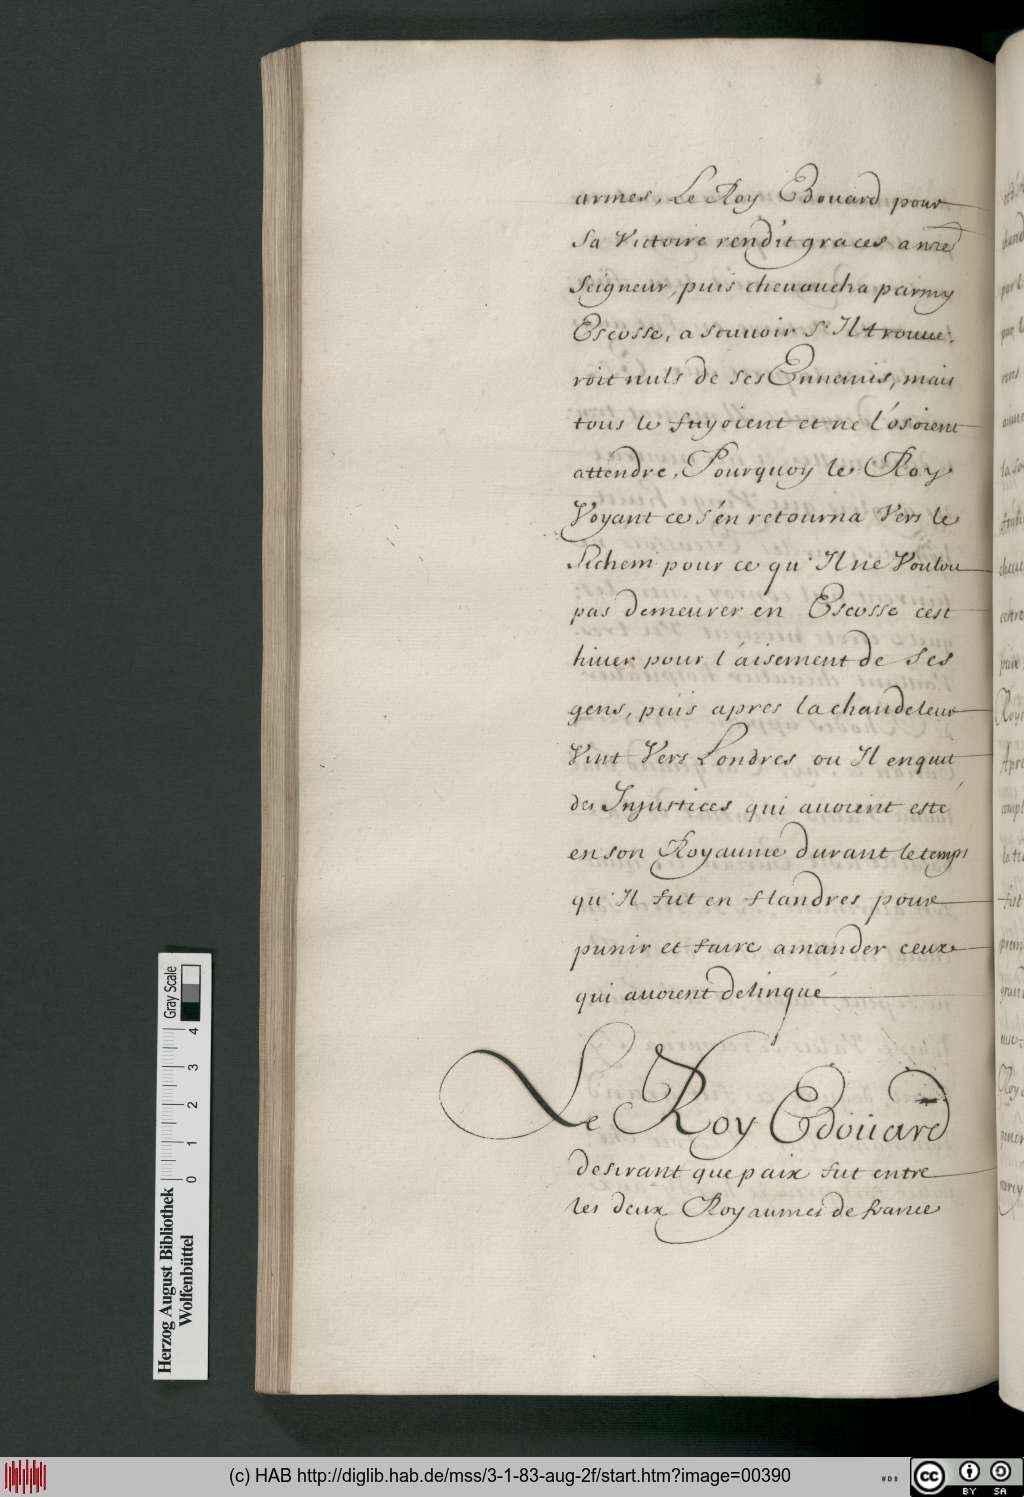 armes, Le Roy Edouard pour
sa Victoire rendit graces a nre
Seigneur, puis cheuaucha parmy
Escosse, a scauoir s'Il trouue-
roit nuls de ses Ennemis, mais
tous le fuyoient et ne l'osoient
attendre, Pourquoy le Roy
Voyant ce s'en retourna Vers le
Sichem pour ce qu'Il ne Voulou
pas demeurer en Escosse cest
hiuer pour l'aisement de ses
gens, puis apres la chandeleur
Vint Vers Londres ou Il enquit
des Injustices qui auoient esté
en son Royaume durant le temps
qu'Il fut en flandres pour
punir et faire amander ceux
qui auoient delinqué
Le Roy Edoüard
desirant que paix fut entre
les deux Royaumes de france
Herzog August Bibliothek
Wolfenbüttel
0 1 2 3 4 Gray Scale
(c) HAB http://diglib.hab.de/mss/3-1-83-aug-2f/start.htm?image=00390
WDB
cc BY SA